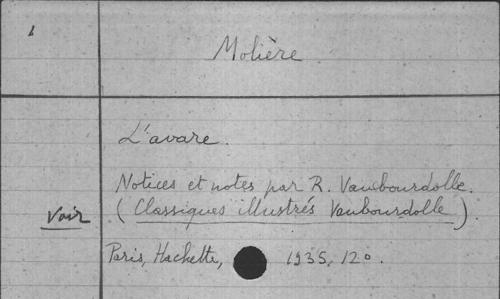 Molière
L'avare.
Notices et notes par R. Vaubourdolle.
Voir (Classiques illustrés Vaubourdolle).
Paris, Hachette, 1935, 12°.